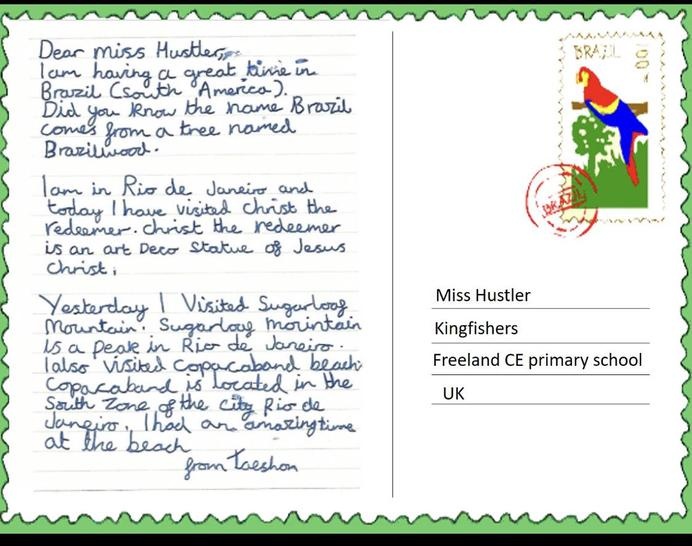 Dear miss Hustler,
I am having a great time in
Brazil (south America).
Did you know the name Brazil
comes from a tree named
Brazillwood.
I am in Rio de Janeiro and
today I have visited Christ the
redeemer. Christ the redeemer
is an art Deco Statue of Jesus
Christ.
Yesterday I Visited Sugarloag
Mountain. Sugarloag mountain
is a peak in Rio de Janeiro.
I also visited Copacaband beach.
Copacaband is located in the
South Zone of the city Rio de
Janeiro. I had an amazing time
at the beach
from Taeshan
BRAZIL
BRAZIL
Miss Hustler
Kingfishers
Freeland CE primary school
UK